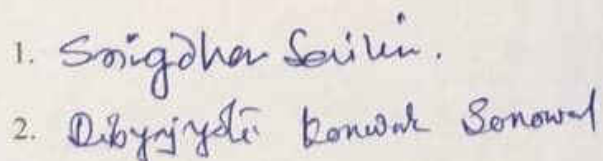 1. Snigdha Saikia.
2. Dibyajyoti Konwar Sonowal